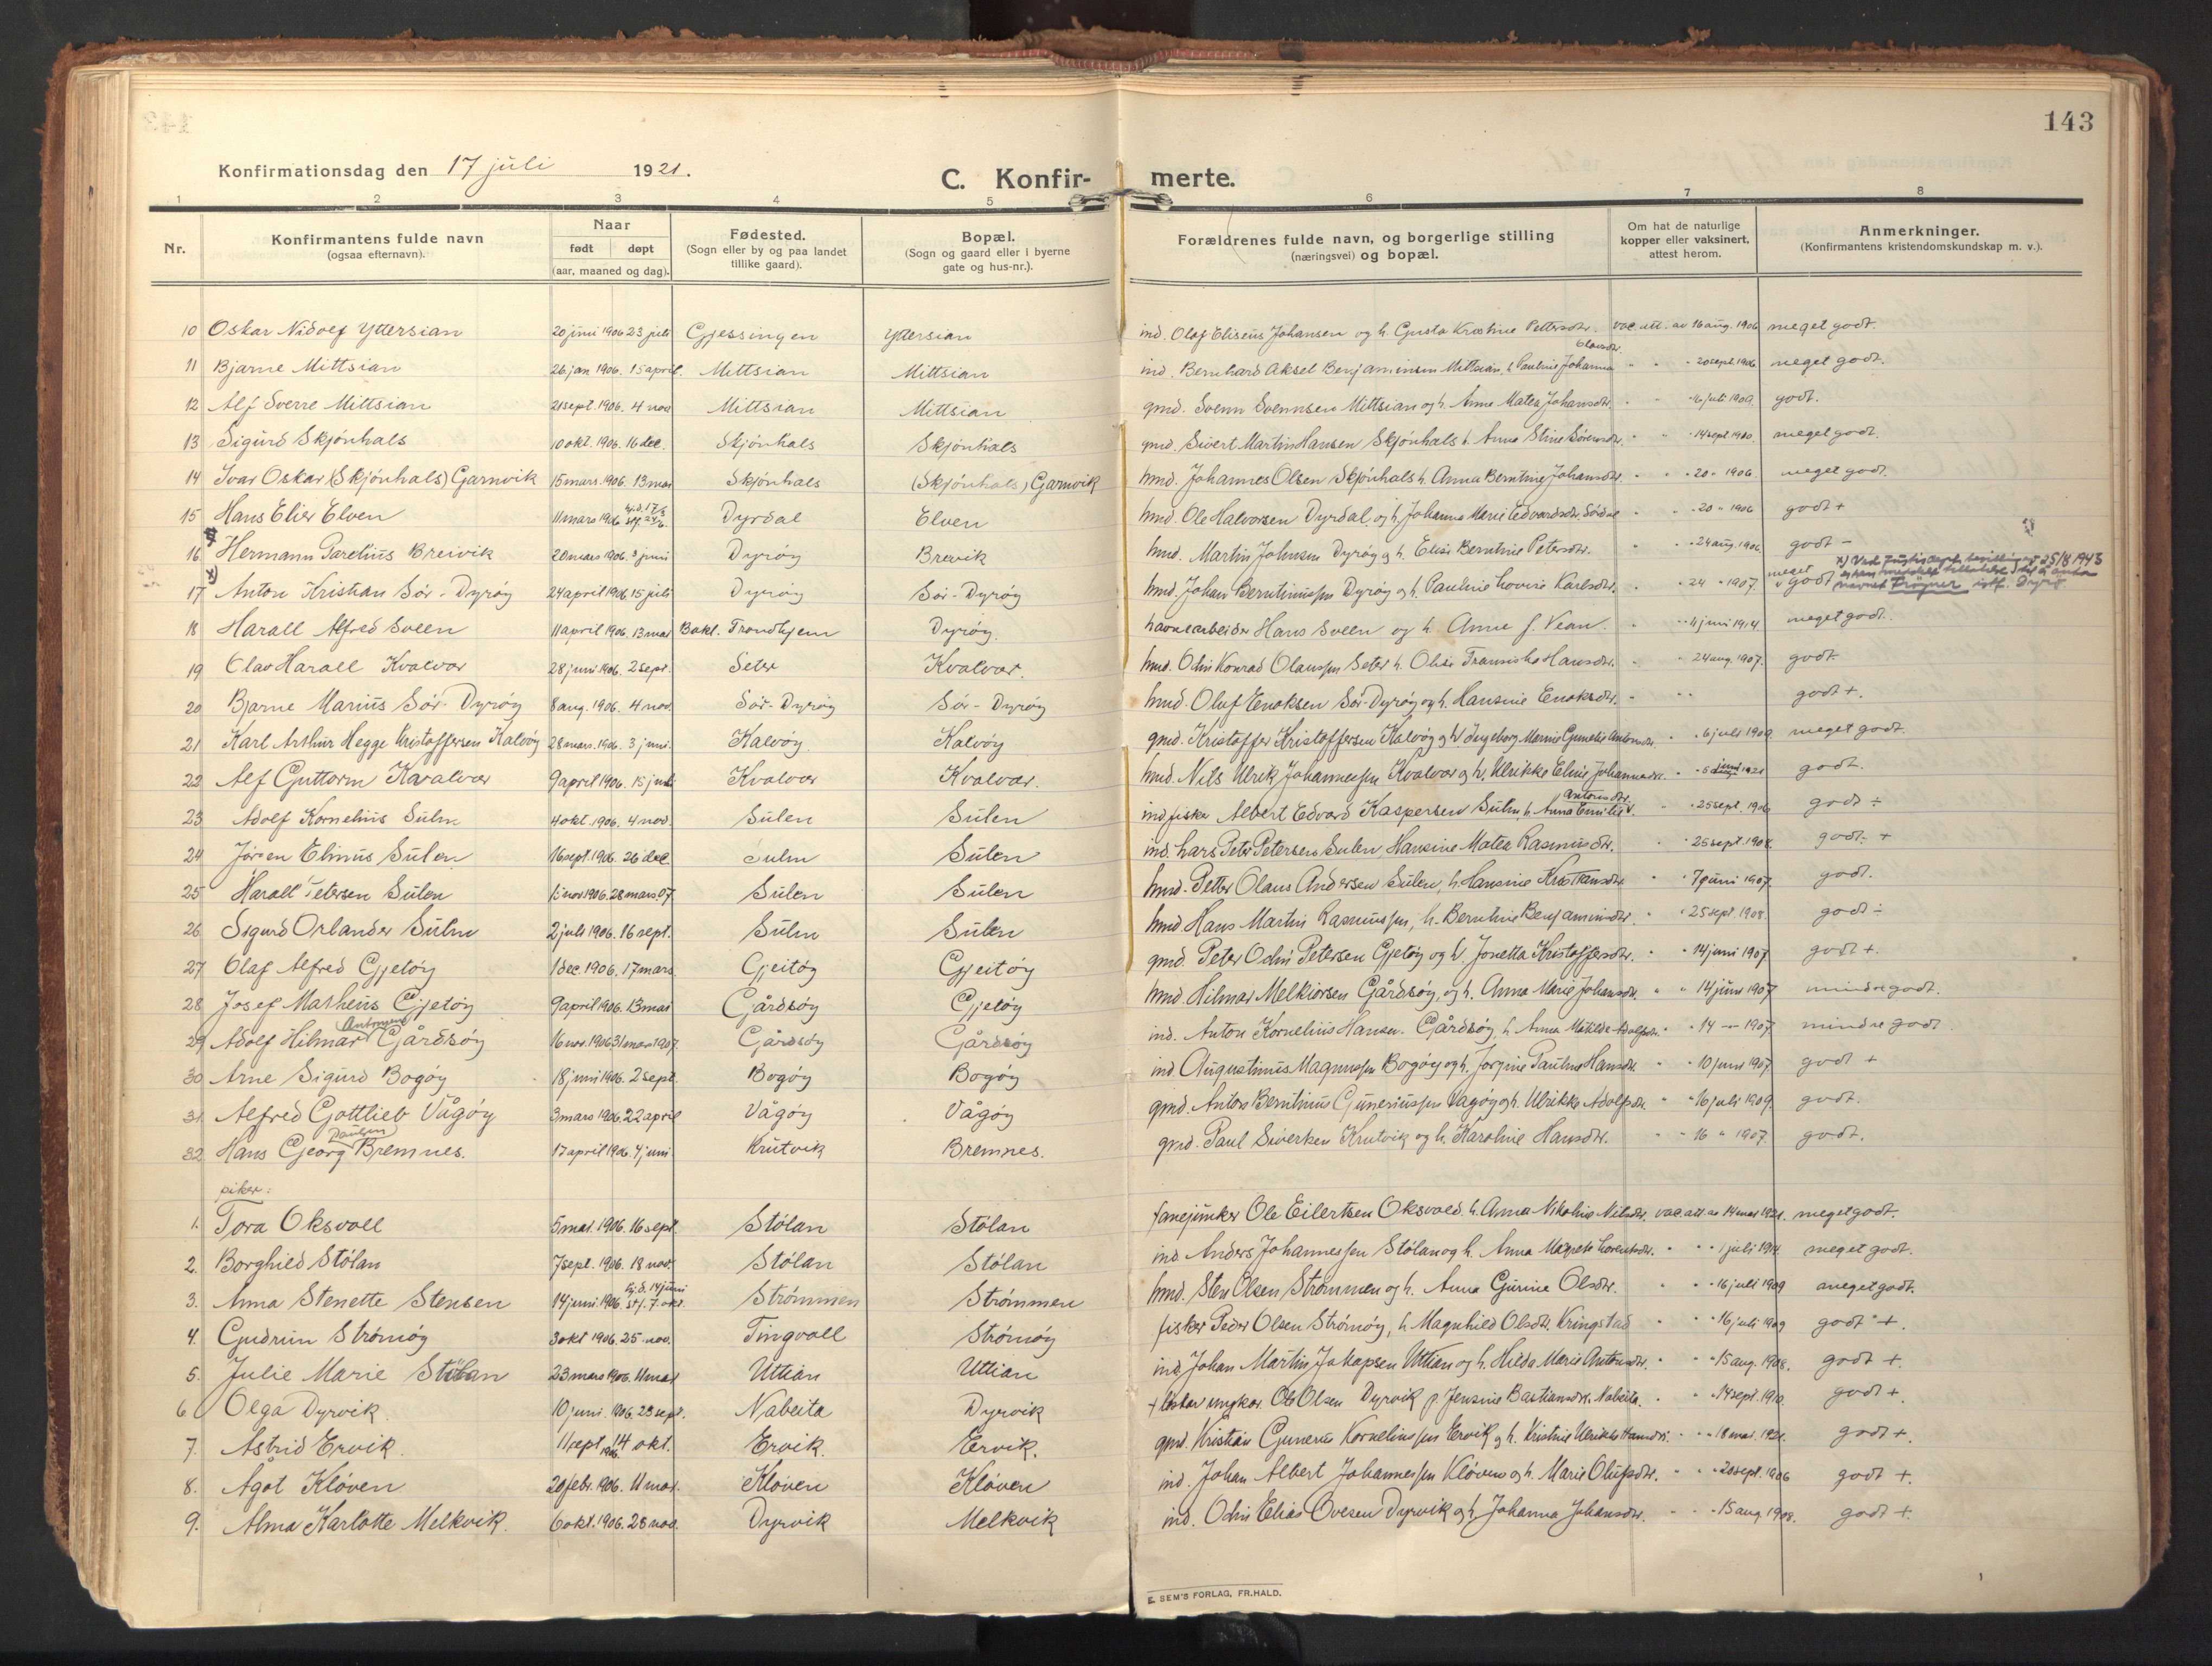 143
Konfirmationsdag den 17 juli 1921.
C. Konfir- merte.
1 2 3 4 5 6 7 8
Nr.
Konfirmantens fulde navn
(ogsaa efternavn).
Naar
født døpt
(aar, maaned og dag).
Fødested.
(Sogn eller by og paa landet
tillike gaard).
Bopæl.
(Sogn og gaard eller i byerne
gate og hus-nr.).
Forældrenes fulde navn, og borgerlige stilling
(næringsvei) og bopæl.
Om hat de naturlige
kopper eller vaksinert,
attest herom.
Anmerkninger.
(Konfirmantens kristendomskundskap m. v.).
10 Oskar Nidolf Yttersian 20 juni 1906 23 juli Gjessingen Yttersian ind. Olaf Eliseus Johansen og h. Gusta Kristine Pettersdtr. vac. att. av 16 aug. 1906 meget godt.
11 Bjarne Mittsian 26. jan 1906. 15 april. Mittsian Mittsian ind. Bernhard Aksel Benjaminsen Mittsian, h. Pauline Johanna Olausdtr. " " " 20 sept. 1906 meget godt.
12 Alf Sverre Mittsian 21 sept. 1906. 4 nov Mittsian Mittsian gmd. Svenn Svennsen Mittsian og h. Anne Matea Johansdtr. " " 16 juli 1909. godt.
13 Sigurd Skjönhals 10 okt. 1906. 16 dec. Skjönhals Skjönhals gmd. Sivert Martin Hansen Skjönhals h. Anna Stine Sörensdtr. " " 14 sept. 1910. meget godt.
14 Ivar Oskar (Skjönhals) Garnvik 15 mars. 1906. 13 mai Skjönhals (Skjönhals) Garnvik hmd. Johannes Olsen Skjönhals h. Anna Berntine Johansdtr. " " 20 " 1906. meget godt.
15 Hans Elier Elven 11 mars 1906 Dyrdal Elven hmd. Ole Halvorsen Dyrdal og h. Johanna Marie Edvardsdtr. " " 20 " 1906 godt +
16 Hermann Parelius Breivik 20 mars 1906. 3 juni Dyröy Brevik hmd. Martin Johnsen Dyröy og h. Elise Berntine Petersdtr. " " 24 aug. 1906. godt -
17 x) Anton Kristian Sör-Dyröy 24 april 1906 15 juli Dyröy Sör-Dyröy hmd. Johan Berntinussen Dyröy og h. Pauline Lovise Karlsdtr. " " 24 " 1907. meget godt x) Ved Justisdeps. bevilling af 25/8 1943 er han meddelt tillatelse til å anta navnet Frøyner istf. Dyrö
18 Harall Alfred Sveen 11 april 1906. 13 mai Bakl. Trondhjem Dyröy. havnearbeider Hans Sveen og h. Anne f. Vean. " " 11 juni 1914. meget godt.
19 Olav Harall Kvalvær 28 juni 1906. 2 sept. Seter Kvalvær. hmd. Odin Konrad Olaussen Seter h. Olise Fransiska Hansdtr. " " 24 aug. 1907. godt.
20 Bjarne Marius Sör-Dyröy 8 aug. 1906. 4 nov. Sör-Dyröy Sör-Dyröy hmd. Oluf Enoksen Sör-Dyröy og h. Hansine Enoksdtr. " " " godt +.
21 Karl Arthur Hegge Kristoffersen Kalvöy 28 mars. 1906. 3 juni. Kalvöy. Kalvöy gmd. Kristoffer Kristoffersen Kalvöy og h. Ingeborg Marnie Gunelie Antonsdtr. " 6 juli 1909 meget godt.
22 Alf Guttorm Kvalvær 9 april 1906. 15 juli Kvalvær Kvalvær. hmd. Nils Ulrik Johannessen Kvalvær og h. Ulrikke Eline Johannesdtr. " 5 juni 1921 godt.
23 Adolf Kornelius Sulen 4 okt. 1906. 4 nov. Sulen Sulen ind. fisker Albert Edvard Kaspersen Sulen, h. Anna Emilie Antonsdtr. " 25 sept. 1906 godt ÷
24 Jörgen Elinus Sulen 16 sept. 1906. 26 dec. Sulen Sulen ind. Lars Peter Petersen Sulen, Hansine Matea Rasmusdtr. " 25 sept. 1908. godt. +
25 Harall Petersen Sulen 1 nov 1906. 28 mars. 07. Sulen Sulen hmd. Petter Olaus Andersen Sulen, h. Hansine Kristiansdtr " 7 juni 1907. godt.
26 Sigurd Orlander Sulen 2 juli 1906. 16 sept. Sulen Sulen hmd Hans Martin Rasmussen, h. Berntine Benjaminsdtr. " 25 sept 1908. godt ÷
27 Olaf Alfred Gjetöy 1 dec. 1906. 17 mars Gjeitöy Gjeitöy gmd. Peter Odin Petersen Gjetöy og h. Jonetta Kristoffersdtr. " 14 juni 1907 godt +.
28 Josef Matheus Gjetöy 9 april 1906. 13 mai Gårdsöy Gjetöy hmd. Hilmar Melkiorsen Gårdsöy, og h. Anna Marie Johansdtr. " " 14 juni 1907 mindre godt.
29 Adolf Hilmar Antonsen Gårdsöy 16 nov. 1906 31 mars 1907. Gårdsöy Gårdsöy ind. Anton Kornelius Hansen. Gårdsöy, h. Anna Matilde Adolfsdtr. " 14 " 1907. mindre godt
30 Arne Sigurd Bogöy 18 juni 1906. 2 sept. Bogöy Bogöy ind Augustinus Magnussen Bogöy og h. Jorgine Pauline Hansdtr. " 10 juni 1907 godt +
31 Alfred Gottlieb Vågöy 3 mars 1906. 22 april Vågöy Vågöy gmd. Anton Berntinus Guneriussen Vagöy og h. Ulrikke Adolfsdtr. " 16 juli 1909. godt.
32 Hans Georg Paulsen Bremnes. 17 april 1906. 4 juni. Krutvik Bremnes. gmd. Paul Sivertsen Krutvik og h. Karoline Hansdtr. " 16 " 1907. godt.
piker:
1. Tora Oksvoll 5 mai. 1906. 16 sept. Stölan Stölan fanejunker Ole Eilertsen Oksvold. h. Anna Nikoline Nilsdtr. vac. att. av 14 mai 1921. meget godt.
2. Borghild Stölan 7 sept. 1906. 18 nov. Stölan Stölan ind. Anders Johannessen Stölan og h. Anna Magrete Lorentsdtr. " " 1 juli 1914. meget godt.
3. Anna Stenette Stensen 14 juni. 1906. hj.d. 14 juni stf. 7. okt. Strömmen Strömmen hmd. Sten Olsen Strömmen og h. Anna Gurine Olsdtr. " " 16 juli 1909 meget godt.
4. Gudrun Strömöy 3 okt 1906. 25 nov. Tingvoll Strömöy fisker Peder Olsen Strömöy, h. Magnhild Olsdtr. Kringstad " " 16 juli 1909 godt +.
5. Julie Marie Stölan 23 mars 1906. 11 mai Uttian Uttian ind. Johan Martin Jakopsen Uttian og h. Hilda Marie Antonsdtr. " " 15 aug. 1908. godt +.
6 Olga Dyrvik. 10 juni. 1906. 23 sept. Nabeita Dyrvik ungkar. Ole Olsen Dyrvik p. Jensine Bastiansdtr. Nabeita. " " 14 sept. 1910. godt +
7. Astrid Ervik. 11 sept 1906. 14 okt. Ervik. Ervik. gmd. Kristian Gunerus Kornelius sen Ervik og h. Kristine Ulrikke Hansdtr. " " 18 mai. 1921. godt +.
8. Agot Klöven 20 febr. 1906. 11 mai. Klöven Klöven ind. Johan Albert Johannessen Klöven og h. Marie Olufsdtr. " " 20 sept. 1906 godt +.
9. Alma Karlotte Melkvik. 6 okt. 1906. 28 nov. Dyrvik Melkvik ind. Odin Elias Ovesen Dyrvik og h. Johanna Johansdtr. " " 15 aug 1908. godt +.
E. SEM'S FORLAG, FR.HALD.